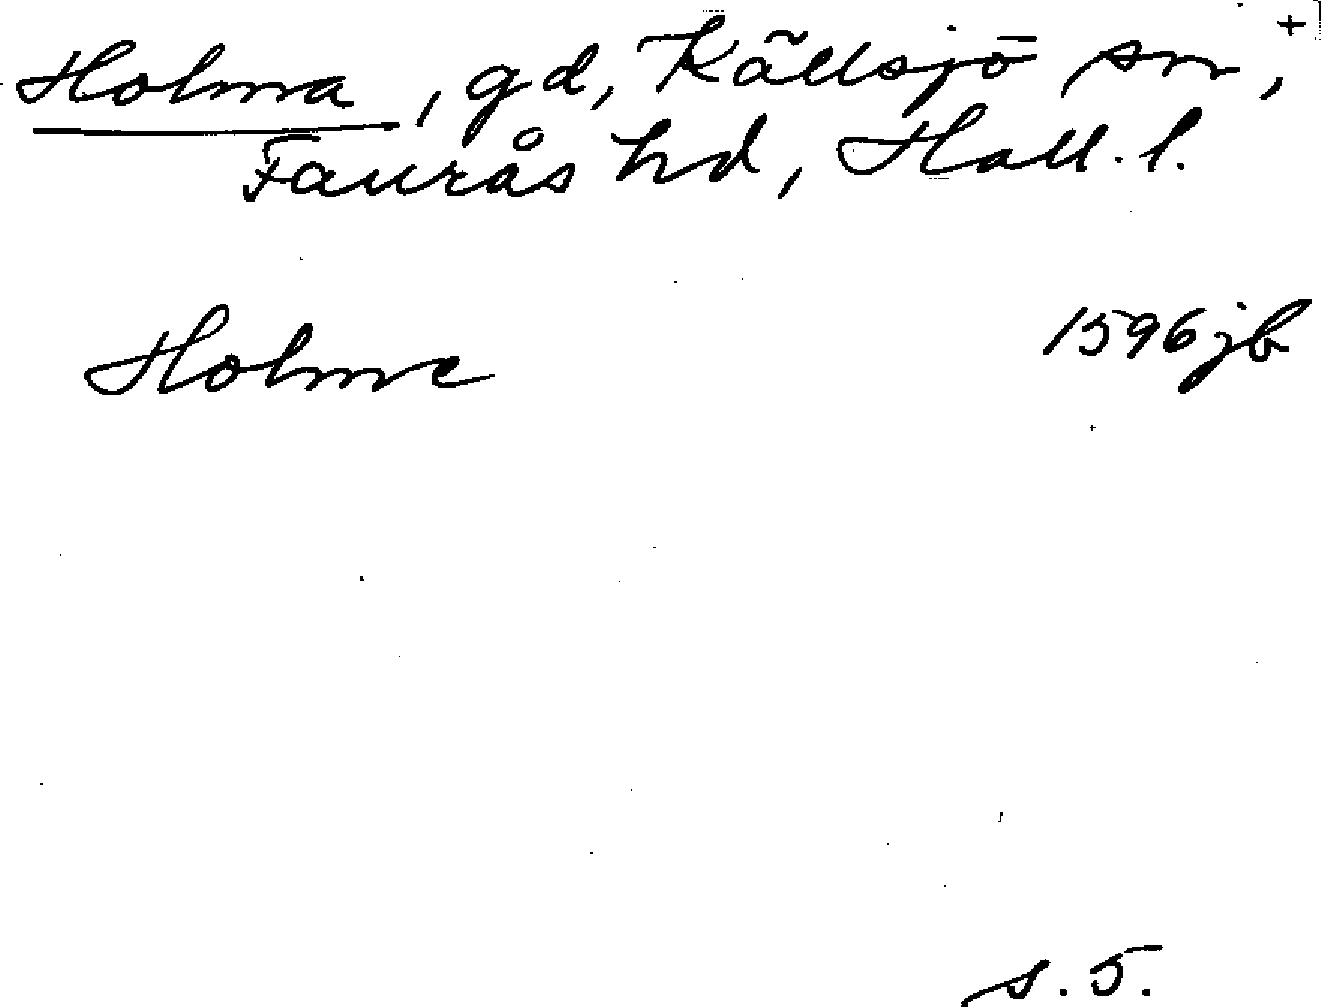 Holma, gd, Källsjö sn, +
Faurås hd, Hall. l.
Holme 1596 jb
s. 5.